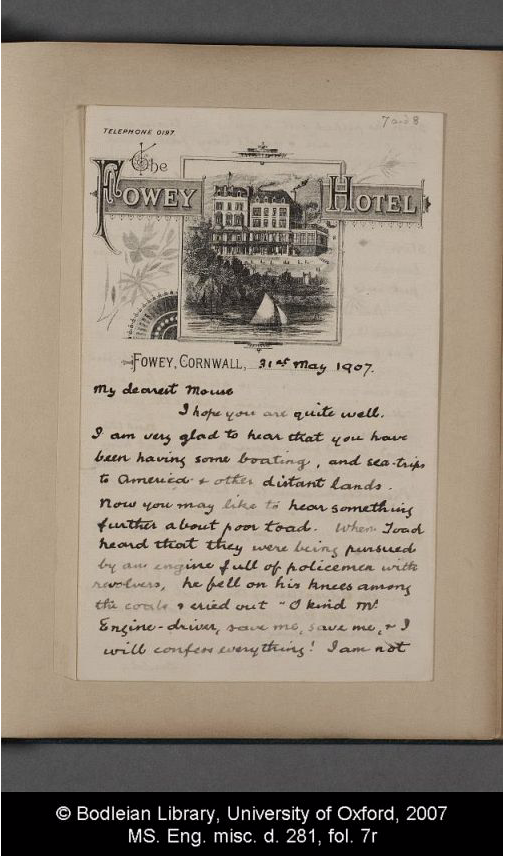 7 and 8
TELEPHONE 0197
The
FOWEY HOTEL
FOWEY, CORNWALL, 31st May 1907.
My dearest Mouse
I hope you are quite well.
I am very glad to hear that you have
been having some boating, and sea-trips
to America & other distant lands.
Now you may like to hear something
further about poor toad. When Toad
heard that they were being pursued
by an engine full of policemen with
revolvers, he fell on his knees among
the coals & cried out "O kind Mr
Engine-driver, save me, save me, & I
will confess everything! I am not
© Bodleian Library, University of Oxford, 2007
MS. Eng. misc. d. 281, fol. 7r